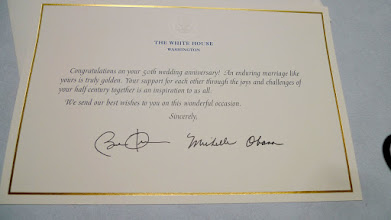 THE WHITE HOUSE
WASHINGTON
Congratulations on your 50th wedding anniversary! An enduring marriage like
yours is truly golden. Your support for each other through the joys and challenges of
your half century together is an inspiration to us all.
We send our best wishes to you on this wonderful occasion.
Sincerely,
Michelle Obama